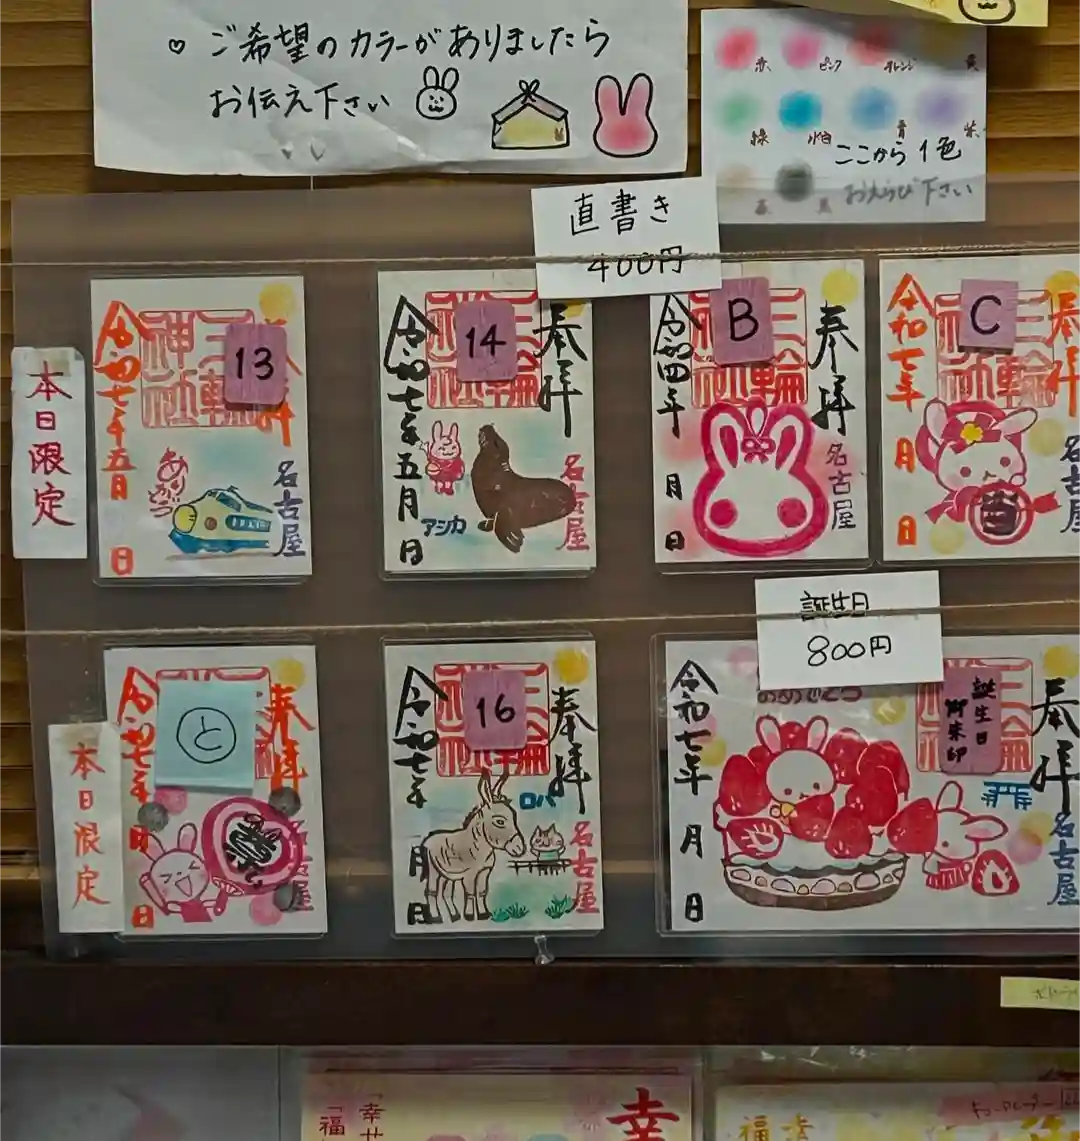 ♡ ご希望のカラーがありましたら
お伝え下さい
赤 ピンク オレンジ 黄
緑 水色 青 紫
ここから1色
おえらび下さい
直書き
400円
本日限定
13
令和七年五月 日
三輪神社
ありがとう
名古屋
14
奉拝
令和七年五月 日
アシカ
名古屋
B
奉拝
三輪
令和四年 月 日
名古屋
C
奉拝
令和七年 月 日
名古屋
誕生日
800円
本日限定
と
奉拝
令和七年 月 日
16
奉拝
令和七年 月 日
ロバ
名古屋
誕生日
御朱印
奉拝
おめでとう
令和七年 月 日
名古屋
「幸せ
「福
幸
福
幸